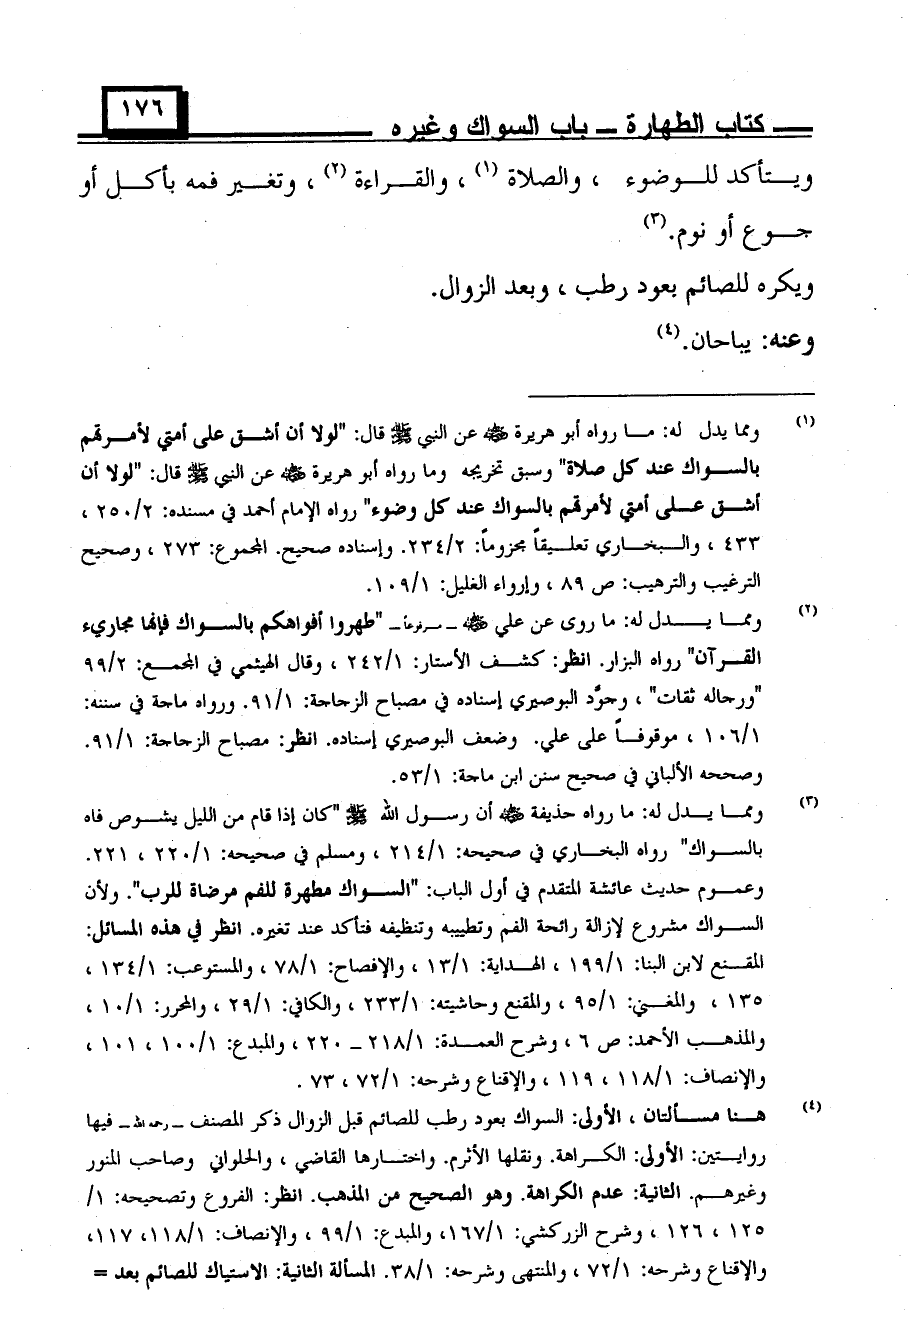 ١٧٦
كتاب الطهارة – باب السواك وغيره
ويتأكد للوضوء ، والصلاة (١) ، والقراءة (٢) ، وتغير فمه بأكل أو
جوع أو نوم.(٣)
ويكره للصائم بعود رطب ، وبعد الزوال.
وعنه: يباحان.(٤)
(١) ومما يدل له: ما رواه أبو هريرة ﷺ عن النبي ﷺ قال: "لولا أن أشق على أمتي لأمرتهم
بالسواك عند كل صلاة" وسبق تخريجه وما رواه أبو هريرة عن النبي ﷺ قال: "لولا أن
أشق على أمتي لأمرتهم بالسواك عند كل وضوء" رواه الإمام أحمد في مسنده: ٢/ ٢٥٠ ،
٤٣٣ ، والبخاري تعليقاً مجزوماً: ٢/ ٢٣٤. وإسناده صحيح. المجموع: ٢٧٣ ، وصحيح
الترغيب والترهيب: ص ٨٩ ، وإرواء الغليل: ١/ ١٠٩.
(٢) ومما يدل له: ما روى عن علي – مرفوعاً – "طهروا أفواهكم بالسواك فإنها مجاريء
القرآن" رواه البزار. انظر: كشف الأستار: ١/ ٢٤٢ ، وقال الهيثمي في المجمع: ٢/ ٩٩
"ورجاله ثقات" ، وجوَّد البوصيري إسناده في مصباح الزجاجة: ١/ ٩١. ورواه ماجة في سننه:
١/ ١٠٦ ، موقوفاً على علي. وضعف البوصيري إسناده. انظر: مصباح الزجاجة: ١/ ٩١.
وصححه الألباني في صحيح سنن ابن ماجة: ١/ ٥٣.
(٣) ومما يدل له: ما رواه حذيفة أن رسول الله ﷺ "كان إذا قام من الليل يشوص فاه
بالسواك" رواه البخاري في صحيحه: ١/ ٢١٤ ، ومسلم في صحيحه: ١/ ٢٢٠ ، ٢٢١.
وعموم حديث عائشة المتقدم في أول الباب: "السواك مطهرة للفم مرضاة للرب". ولأن
السواك مشروع لإزالة رائحة الفم وتطييبه وتنظيفه فتأكد عند تغيره. انظر في هذه المسائل:
المقنع لابن البنا: ١/ ١٩٩ ، الهداية: ١/ ١٣ ، والإفصاح: ١/ ٧٨ ، والمستوعب: ١/ ١٣٤ ،
١٣٥ ، والمغني: ١/ ٩٥ ، والمقنع وحاشيته: ١/ ٢٣٣ ، والكافي: ١/ ٢٩ ، والمحرر: ١/ ١٠ ،
والمذهب الأحمد: ص ٦ ، وشرح العمدة: ١/ ٢١٨ – ٢٢٠ ، والمبدع: ١/ ١٠٠ ، ١٠١ ،
والإنصاف: ١/ ١١٨ ، ١١٩ ، والإقناع وشرحه: ١/ ٧٢ ، ٧٣ .
(٤) هنا مسألتان ، الأولى: السواك بعود رطب للصائم قبل الزوال ذكر المصنف – رحمه الله – فيها
روايتين: الأولى: الكراهة. ونقلها الأثرم. واختارها القاضي ، والحلواني وصاحب المنور
وغيرهم. الثانية: عدم الكراهة. وهو الصحيح من المذهب. انظر: الفروع وتصحيحه: ١/
١٢٥ ، ١٢٦ ، وشرح الزركشي: ١/ ١٦٧، والمبدع: ١/ ٩٩ ، والإنصاف: ١/ ١١٨، ١١٧،
والإقناع وشرحه: ١/ ٧٢ ، والمنتهى وشرحه: ١/ ٣٨. المسألة الثانية: الاستياك للصائم بعد =